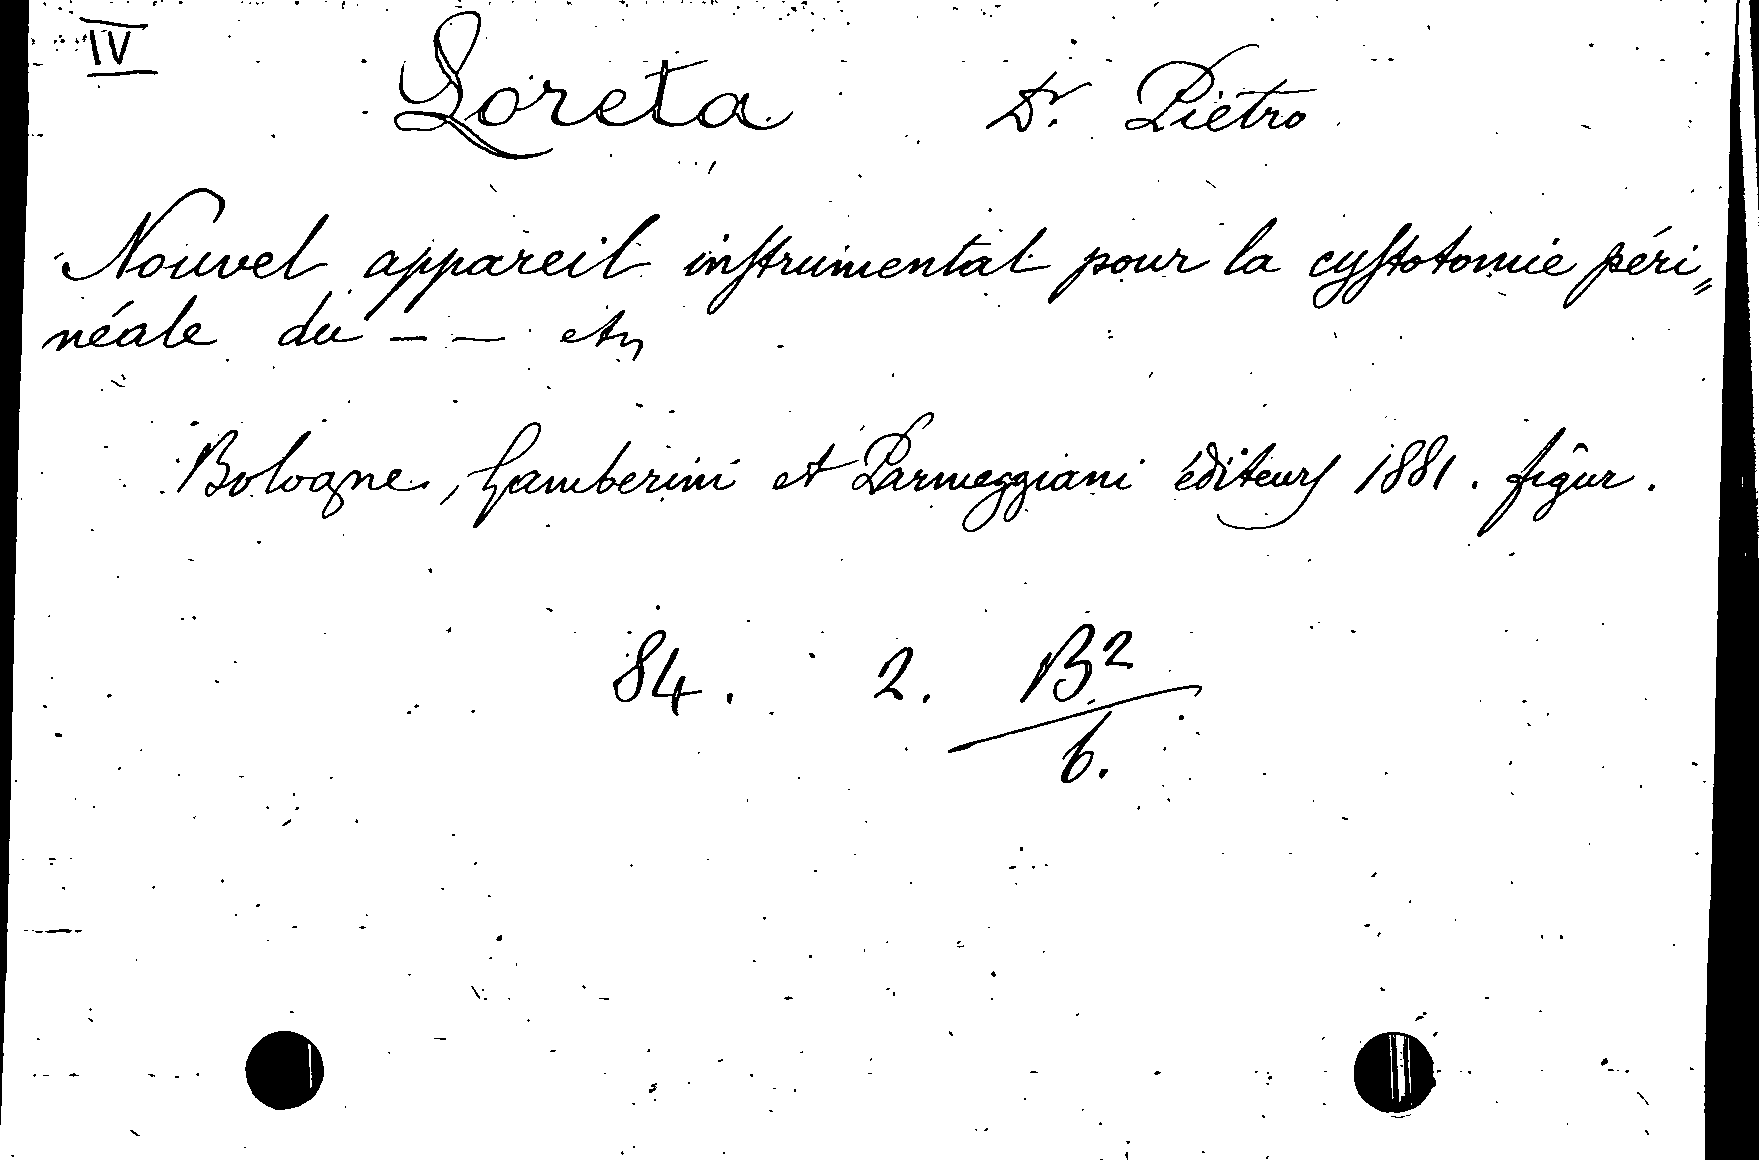 IV
Loreta Dr. Pietro
Nouvel appareil instrumental pour la cystotomie péri„
néale du – – etc
Bologne, Gamberini et Parmeggiani éditeurs 1881. figur.
84. 2. B²
6.